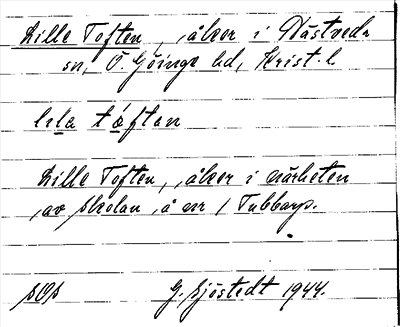 Lille Toften, åker i Nästveda
sn, Ö. Göinge hd, Krist. l
lıla tǿftan
Lille Toften, åker i närheten
av skolan, å nr 1 Tubbarp.
SOS G. Sjöstedt 1944.